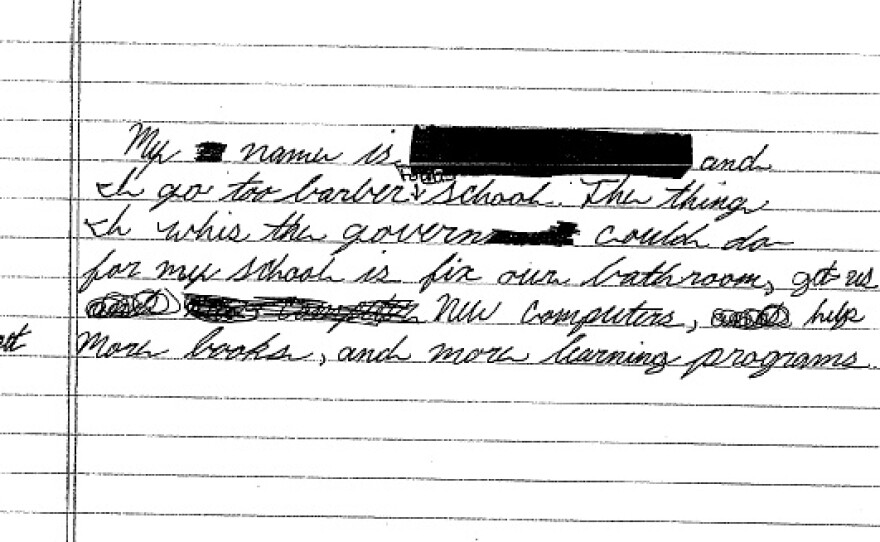 My name is and
I go too barber school. The thing
I whis the govern could do
for my school is fix our bathroom, got us
new computers, help
more books, and more learning programs.